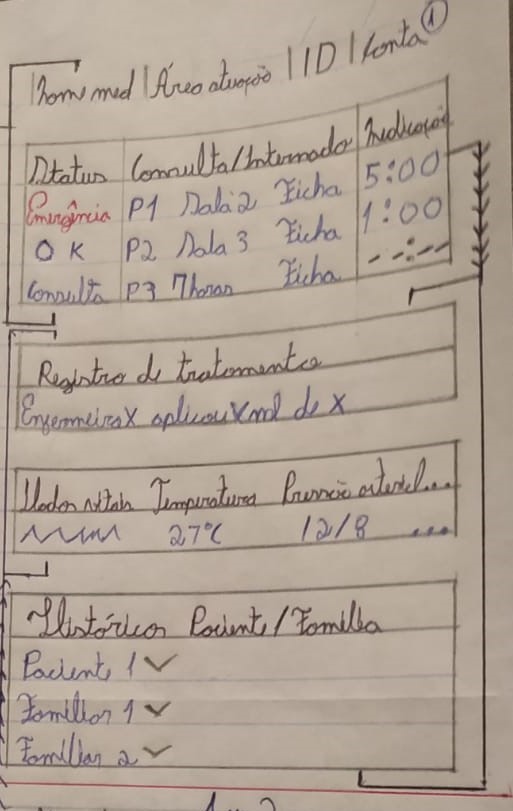 1
|home med | Área atuação | ID | Conta
Status Consulta/Internado Medicação
Emergência P1 Sala 2 Ficha 5:00
OK P2 Sala 3 Ficha 1:00
Consulta P3 7horas Ficha --:--
Registro de tratamento
Enfermeira X aplicou X ml de X
Dados vitais Temperatura Pressão arterial...
27°C 12/8 ...
Históricos Paciente/Família
Paciente 1 ✓
Familiar 1 ✓
Familiar 2 ✓